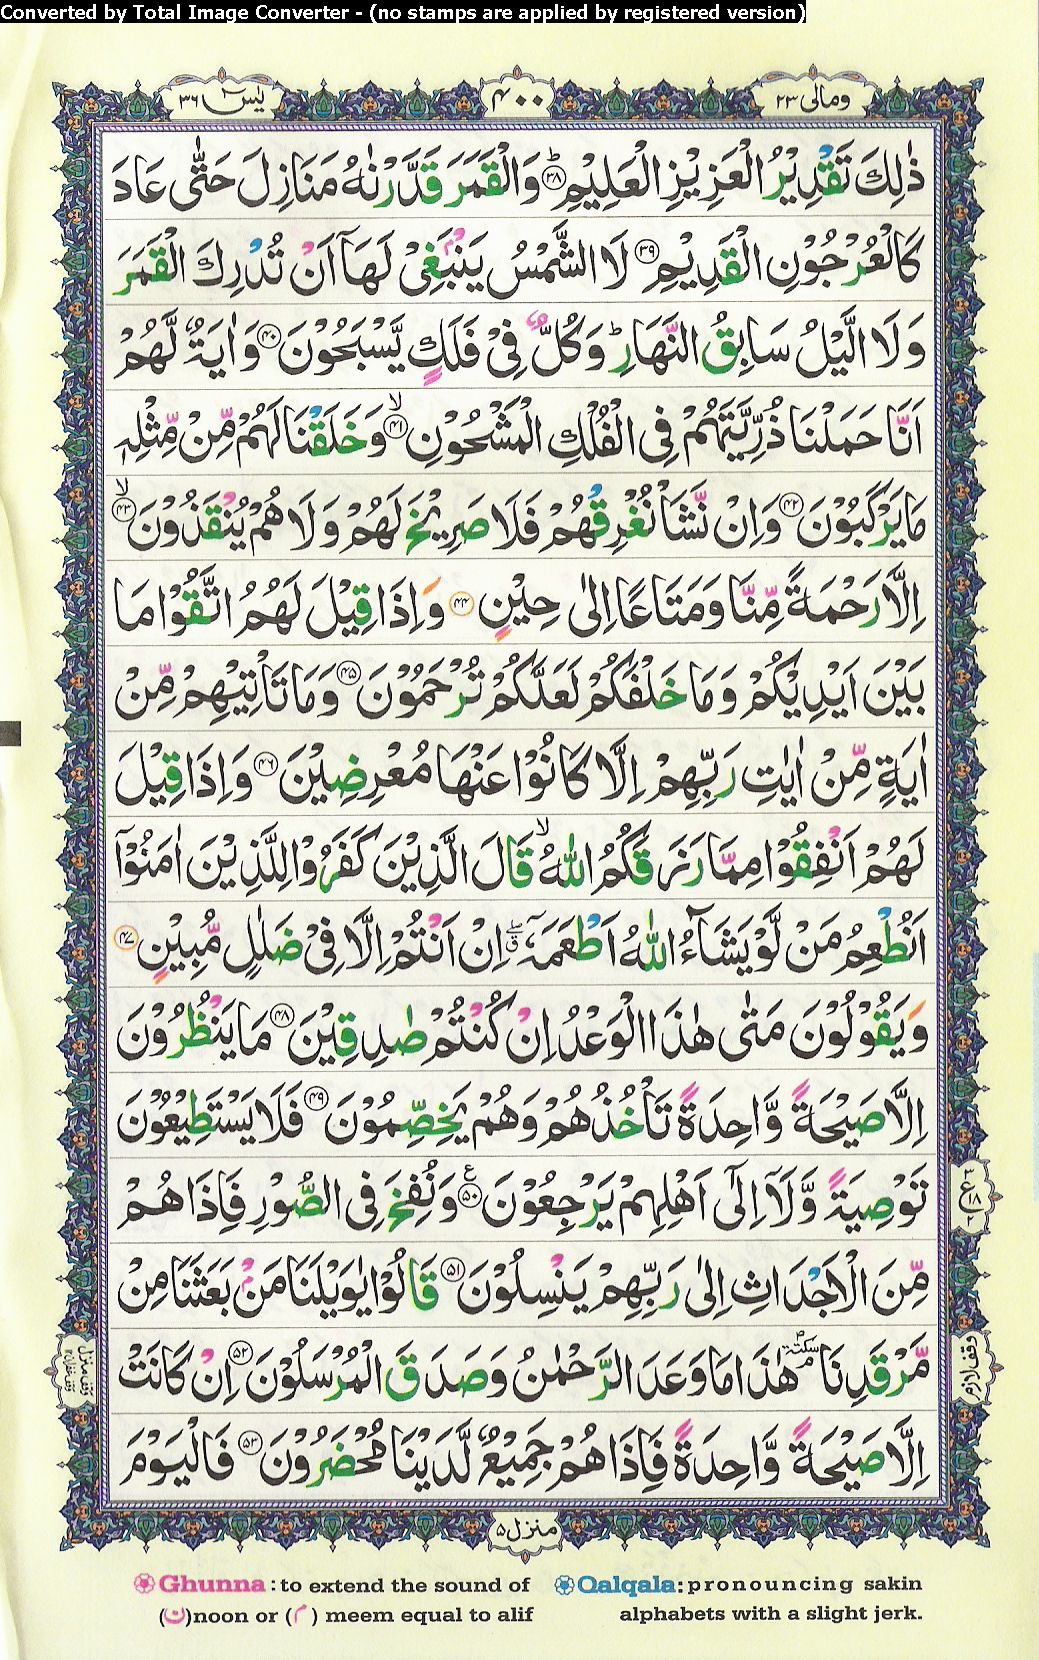 Converted by Total Image Converter - (no stamps are applied by registered version)
ومالی ٢٣ ۴۰۰ یٰسٓ ٣٦
ذٰلِكَ تَقْدِیْرُ الْعَزِیْزِ الْعَلِیْمِ ؕ﴿۳۸﴾ وَالْقَمَرَ قَدَّرْنٰهُ مَنَازِلَ حَتّٰی عَادَ
كَالْعُرْجُوْنِ الْقَدِیْمِ ﴿۳۹﴾ لَا الشَّمْسُ یَنْۢبَغِیْ لَهَاۤ اَنْ تُدْرِكَ الْقَمَرَ
وَلَا الَّیْلُ سَابِقُ النَّهَارِ ؕ وَكُلٌّ فِیْ فَلَكٍ یَّسْبَحُوْنَ ﴿۴۰﴾ وَاٰیَةٌ لَّهُمْ
اَنَّا حَمَلْنَا ذُرِّیَّتَهُمْ فِی الْفُلْكِ الْمَشْحُوْنِ ۙ﴿۴۱﴾ وَخَلَقْنَا لَهُمْ مِّنْ مِّثْلِهٖ
مَا یَرْكَبُوْنَ ﴿۴۲﴾ وَاِنْ نَّشَاْ نُغْرِقْهُمْ فَلَا صَرِیْخَ لَهُمْ وَلَا هُمْ یُنْقَذُوْنَ ۙ﴿۴۳﴾
اِلَّا رَحْمَةً مِّنَّا وَمَتَاعًا اِلٰی حِیْنٍ ﴿۴۴﴾ وَاِذَا قِیْلَ لَهُمُ اتَّقُوْا مَا
بَیْنَ اَیْدِیْكُمْ وَمَا خَلْفَكُمْ لَعَلَّكُمْ تُرْحَمُوْنَ ﴿۴۵﴾ وَمَا تَاْتِیْهِمْ مِّنْ
اٰیَةٍ مِّنْ اٰیٰتِ رَبِّهِمْ اِلَّا كَانُوْا عَنْهَا مُعْرِضِیْنَ ﴿۴۶﴾ وَاِذَا قِیْلَ
لَهُمْ اَنْفِقُوْا مِمَّا رَزَقَكُمُ اللّٰهُ ۙ قَالَ الَّذِیْنَ كَفَرُوْا لِلَّذِیْنَ اٰمَنُوْۤا
اَنُطْعِمُ مَنْ لَّوْ یَشَآءُ اللّٰهُ اَطْعَمَهٗۤ ۖۗ اِنْ اَنْتُمْ اِلَّا فِیْ ضَلٰلٍ مُّبِیْنٍ ﴿۴۷﴾
وَیَقُوْلُوْنَ مَتٰی هٰذَا الْوَعْدُ اِنْ كُنْتُمْ صٰدِقِیْنَ ﴿۴۸﴾ مَا یَنْظُرُوْنَ
اِلَّا صَیْحَةً وَّاحِدَةً تَاْخُذُهُمْ وَهُمْ یَخِصِّمُوْنَ ﴿۴۹﴾ فَلَا یَسْتَطِیْعُوْنَ
تَوْصِیَةً وَّلَاۤ اِلٰۤی اَهْلِهِمْ یَرْجِعُوْنَ ﴿۵۰﴾ ع وَنُفِخَ فِی الصُّوْرِ فَاِذَا هُمْ
مِّنَ الْاَجْدَاثِ اِلٰی رَبِّهِمْ یَنْسِلُوْنَ ﴿۵۱﴾ قَالُوْا یٰوَیْلَنَا مَنْۢ بَعَثَنَا مِنْ
مَّرْقَدِنَا ۘ سكتة هٰذَا مَا وَعَدَ الرَّحْمٰنُ وَصَدَقَ الْمُرْسَلُوْنَ ﴿۵۲﴾ اِنْ كَانَتْ
اِلَّا صَیْحَةً وَّاحِدَةً فَاِذَا هُمْ جَمِیْعٌ لَّدَیْنَا مُحْضَرُوْنَ ﴿۵۳﴾ فَالْیَوْمَ
وقف لازم
منزل ۵
Ghunna : to extend the sound of (ن)noon or (م) meem equal to alif
Qalqala: pronouncing sakin alphabets with a slight jerk.